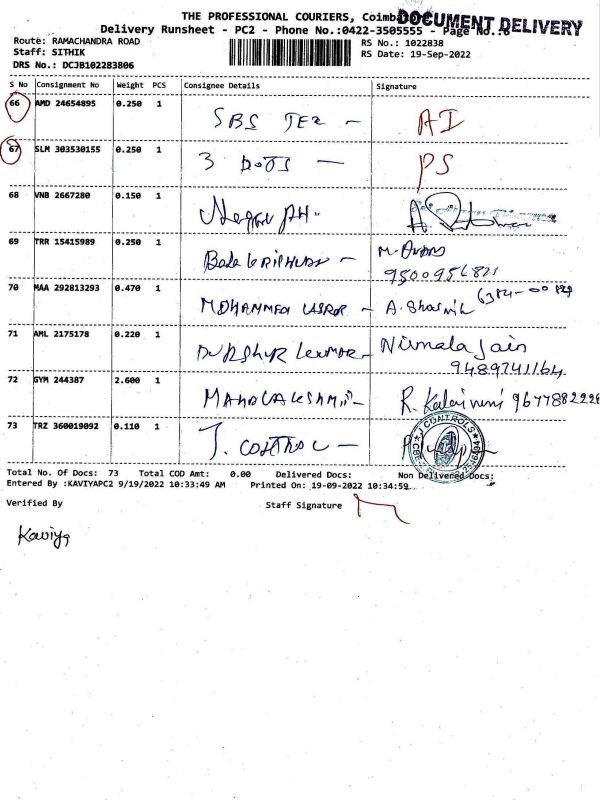 THE PROFESSIONAL COURIERS, Coimb
DOCUMENT DELIVERY
Delivery Runsheet - PC2 - Phone No.:0422-3505555 - Page No.:6
Route: RAMACHANDRA ROAD
RS No.: 1022838
Staff: SITHIK
RS Date: 19-Sep-2022
DRS No.: DCJB102283806
S No Consignment No Weight PCS Consignee Details Signature
66 AMD 24654895 0.250 1 SBS TEX - AI
67 SLM 303530155 0.250 1 3 DOTS - PS
68 VNB 2667280 0.150 1
69 TRR 15415989 0.250 1
9500956821
70 MAA 292813293 0.470 1 MOHAMMED - A.
71 AML 2175178 0.220 1 Nirmala Jain
9489741164
72 GYM 244387 2.600 1 R. 9677882228
73 TRZ 360019092 0.110 1 J. CONTROL -
J CONTROLS
Total No. Of Docs: 73 Total COD Amt: 0.00 Delivered Docs: Non Delivered Docs:
Entered By :KAVIYAPC2 9/19/2022 10:33:49 AM Printed On: 19-09-2022 10:34:59
Verified By
Staff Signature
Kaviya